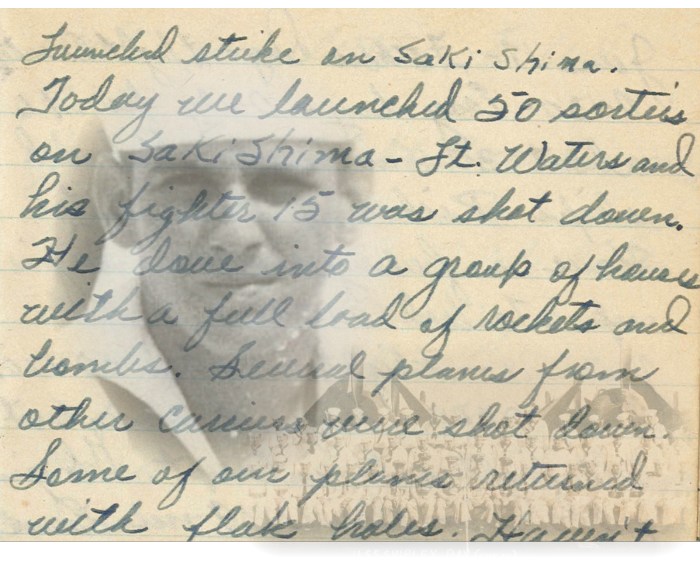 Launched strike on Saki Shima.
Today we launched 50 sorties
on Saki Shima - Lt. Waters and
his fighter 15 was shot down.
He dove into a group of houses
with a full load of rockets and
bombs. Several planes from
other carriers were shot down.
Some of our planes returned
with flak holes. Haven't